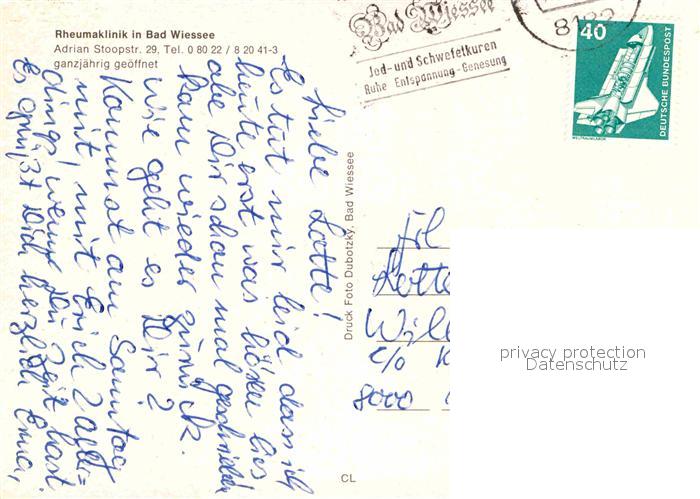 Rheumaklinik in Bad Wiessee
Adrian Stoopstr. 29, Tel. 0 80 22 / 8 20 41-3
ganzjährig geöffnet
Bad Wiessee
Jod- und Schwefelkuren
Ruhe Entspannung-Genesung
8182
40
DEUTSCHE BUNDESPOST
WELTRAUMLABOR
Liebe Lotte!
Es tut mir leid dass ich
heute erst was hören lies
abe Dir schon mal geschrieben
kam wieder zurück.
Wie geht es Dir?
Kommst am Samstag
mit, mit Erich
dings, wenn Du Zeit hast.
Es grüßt Dich herzlich Erna,
Druck Foto Dubotzky, Bad Wiessee
Frl
Lotte
c/o
8000
CL
privacy protection
Datenschutz